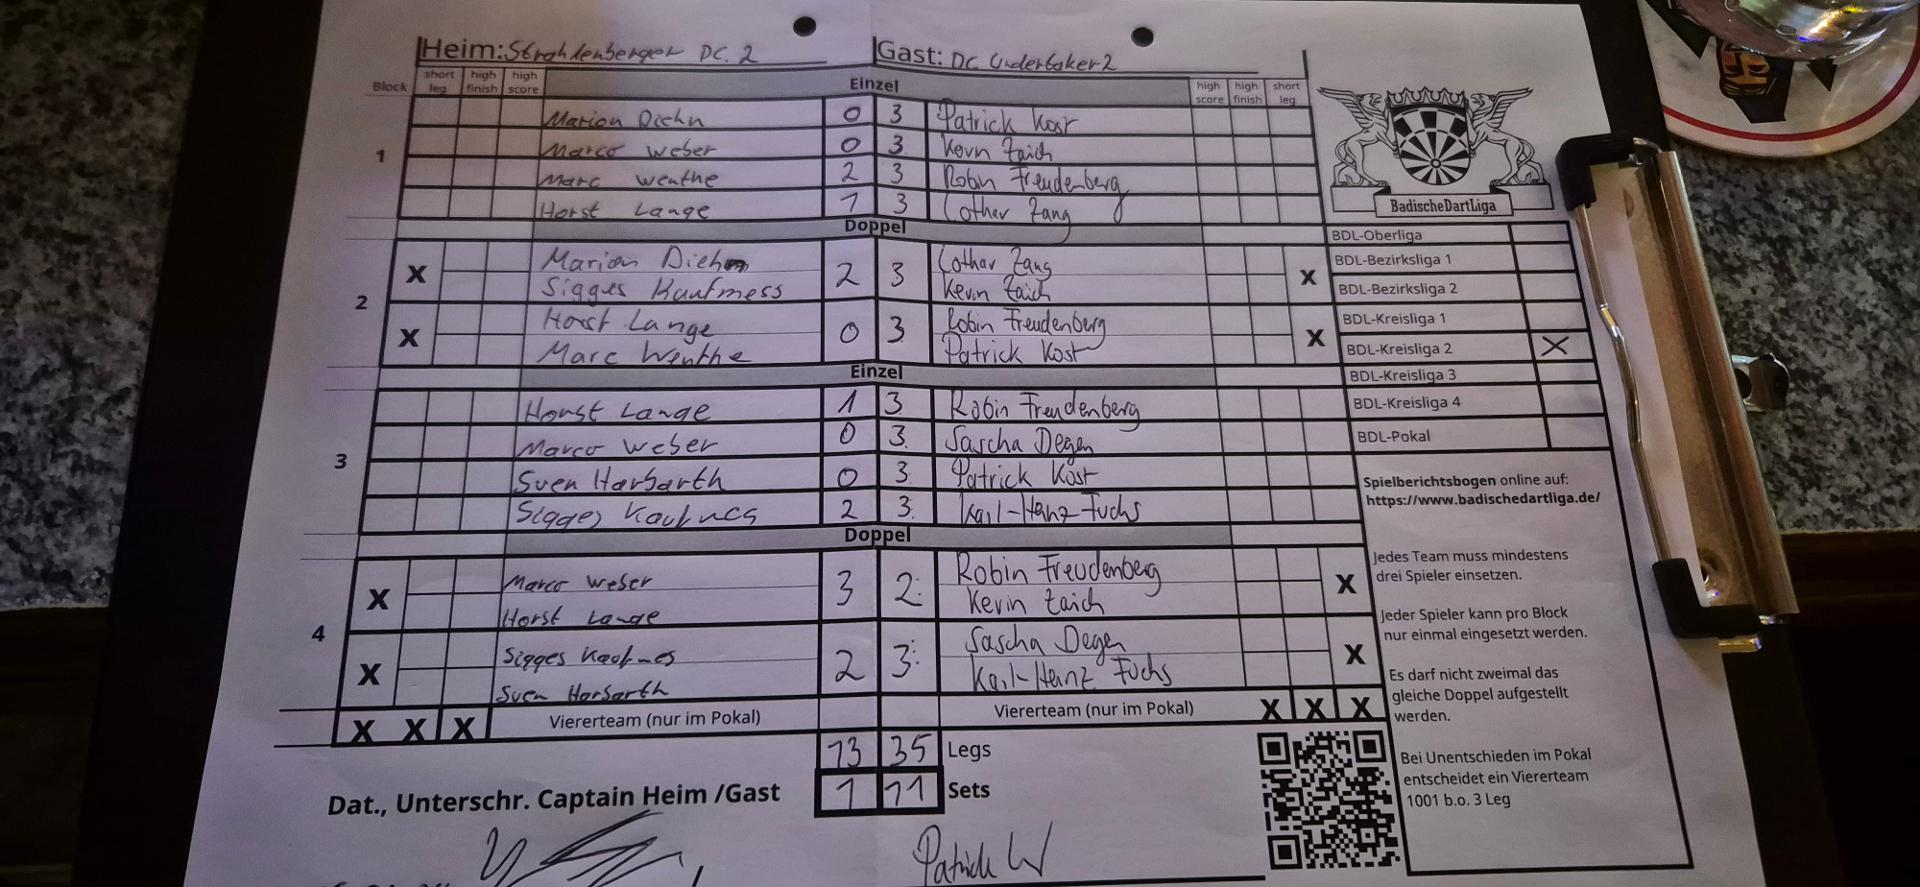 Heim: Strahlenberger DC. 2 Gast: DC Undertaker 2
Block short leg high finish high score Einzel high score high finish short leg
1
Marion Diehn 0 3 Patrick Kost
Marco Weber 0 3. Kevn Zaich
Marc Wenthe 2 3 Robin Freudenberg
Horst Lange 1 3 Lothar Zang
Doppel
2
X Marion Diehm 2 3 Lothar Zang X
Sigges Kaufmess Kevin Zaich
X Horst Lange 0 3 Robin Freudenberg X
Marc Wenthe Patrick Kost
Einzel
3
Horst Lange 1 3. Robin Freudenberg
Marco Weber 0 3. Sascha Degen
Sven Harbarth 0 3. Patrick Kost
Sigges 2 3. Karl-Heinz Fuchs
Doppel
4
X Marco Weber 3 2: Robin Freudenberg X
Horst Lange Kevin Zaich
X Sigges 2 3: Sascha Degen X
Sven Harbarth Karl-Heinz Fuchs
X X X Viererteam (nur im Pokal) Viererteam (nur im Pokal) X X X
13 35 Legs
1 11 Sets
Dat., Unterschr. Captain Heim /Gast
Patrick W
BadischeDartLiga
BDL-Oberliga
BDL-Bezirksliga 1
BDL-Bezirksliga 2
BDL-Kreisliga 1
BDL-Kreisliga 2 X
BDL-Kreisliga 3
BDL-Kreisliga 4
BDL-Pokal
Spielberichtsbogen online auf:
https://www.badischedartliga.de/
Jedes Team muss mindestens
drei Spieler einsetzen.
Jeder Spieler kann pro Block
nur einmal eingesetzt werden.
Es darf nicht zweimal das
gleiche Doppel aufgestellt
werden.
Bei Unentschieden im Pokal
entscheidet ein Viererteam
1001 b.o. 3 Leg